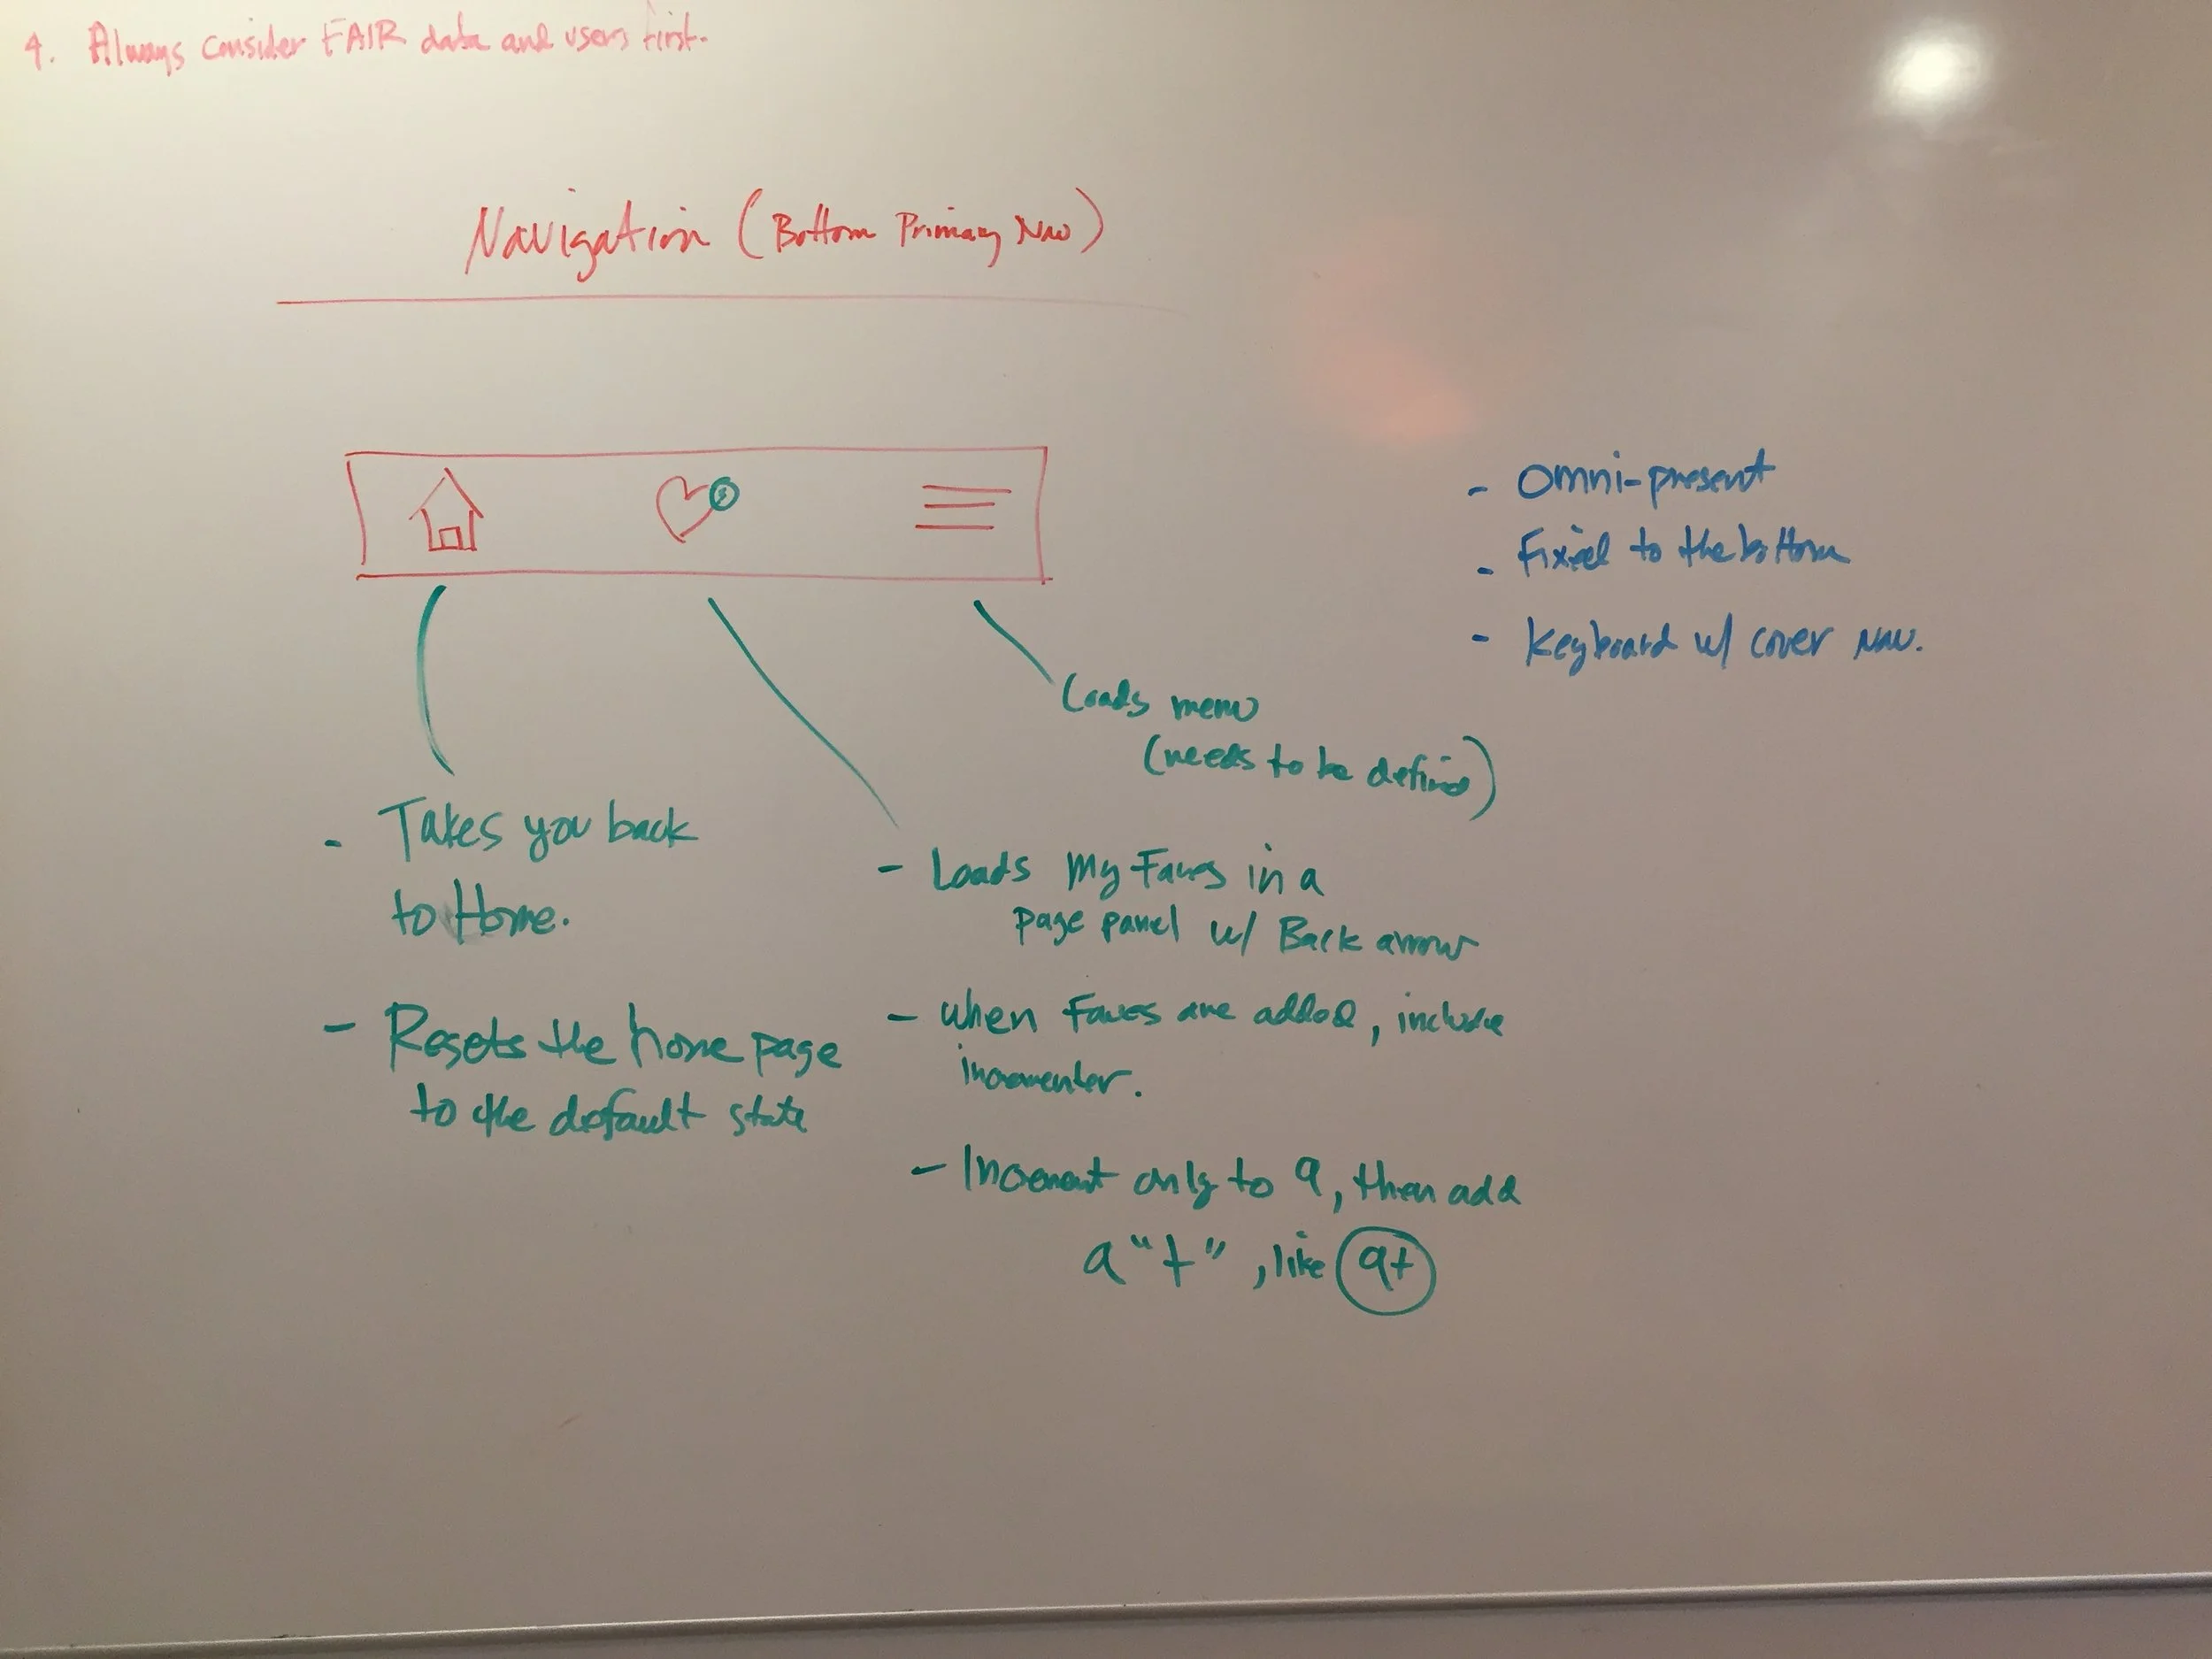 4. Always consider FAIR data and users first.
Navigation (Bottom Primary Nav)
- Omni-present
- Fixed to the bottom
- Keyboard w/ cover nav.
Loads menu
(needs to be defined)
- Takes you back
to Home.
- Resets the home page
to the default state
- Loads My Faves in a
page panel w/ Back arrow
- When Faves are added, include
incrementer.
- Increment only to 9, then add
a "+", like 9+